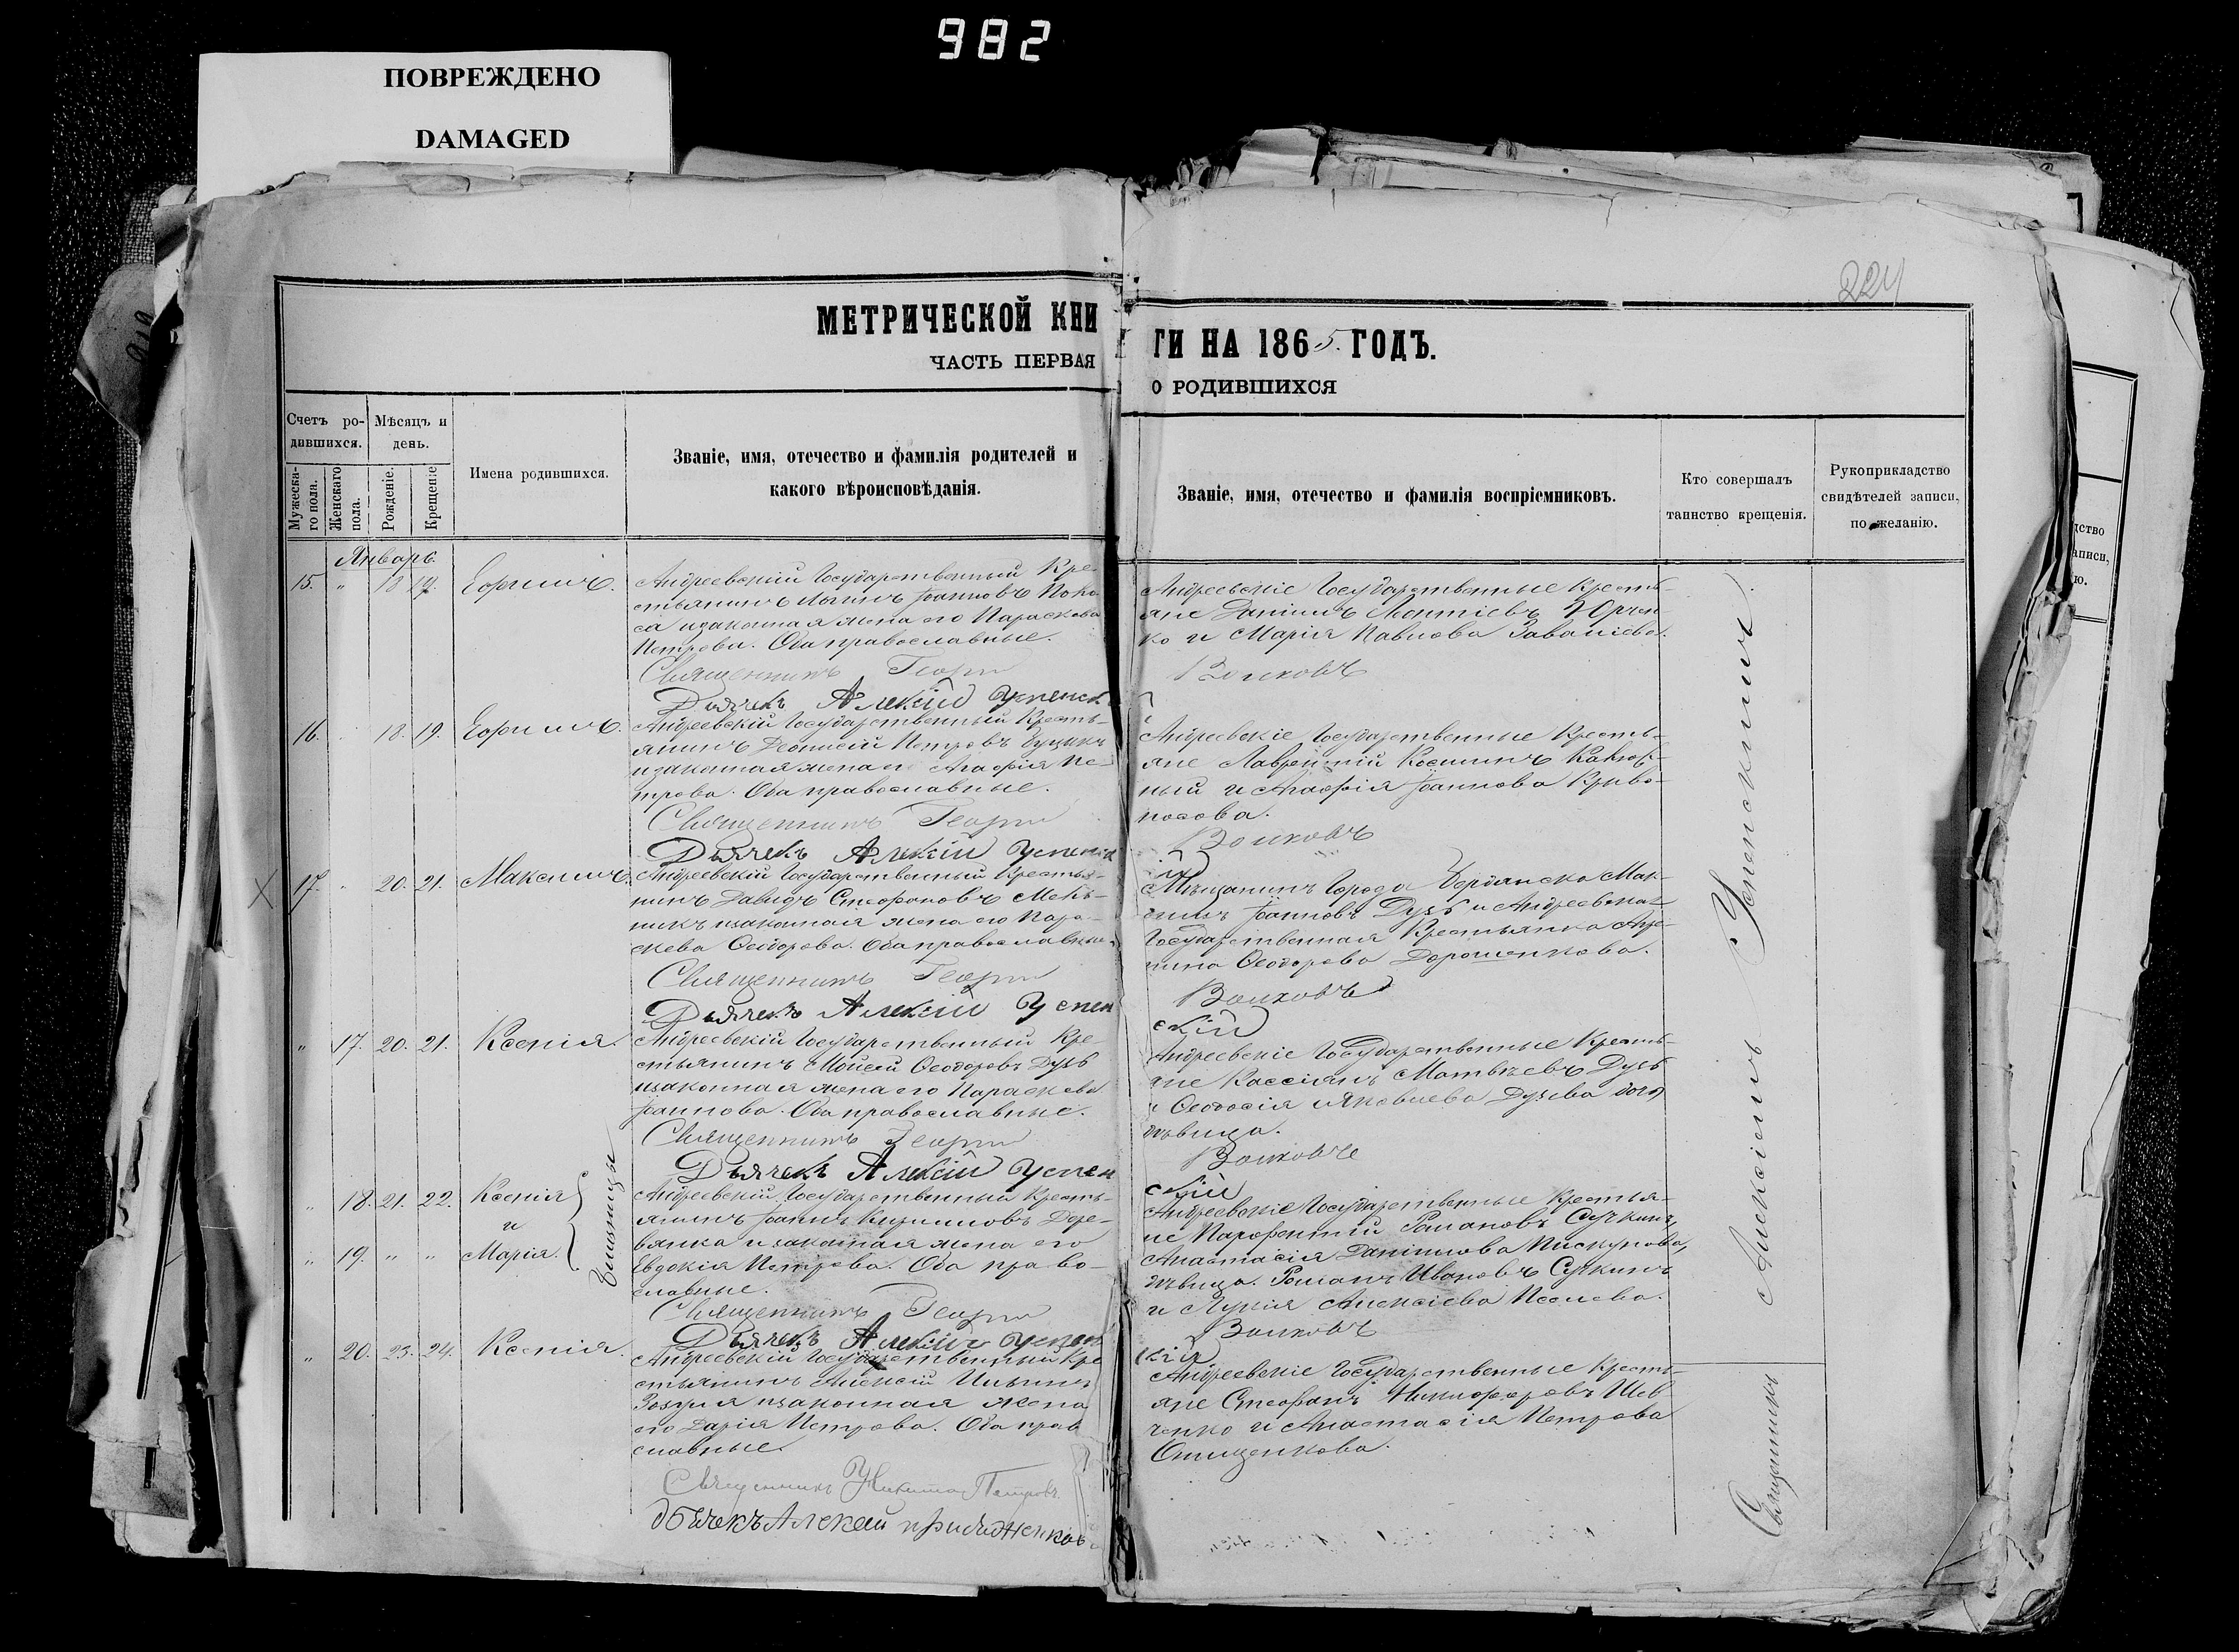 982
ПОВРЕЖДЕНО
DAMAGED
224
МЕТРИЧЕСКОЙ КНИ
ГИ НА 1865. ГОДЪ.
ЧАСТЬ ПЕРВАЯ
О РОДИВШИХСЯ
Счетъ ро-
дившихся.
Мужеска-
го пола.
Женскаго
пола.
Мѣсяцъ и
день.
Рожденіе.
Крещеніе
Имена родившихся.
Званіе, имя, отечество и фамилія родителей и
какого вѣроисповѣданія.
Званіе, имя, отечество и фамилія воспріемниковъ.
Кто совершалъ
таинство крещенія.
Рукоприкладство
свидѣтелей записи,
по желанію.
дство
аписи,
ю.
Январь.
15. " 18 19. Ефримъ.
Андреевскій Государственный Кре-
стьянинъ Іоанновъ
и законная жена его Параскева
Петрова. Оба православные.
Священникъ Георгій
Дьячекъ Алексій Успенск
Андреевскіе Государственные Кресть-
яне Даніилъ Леонтіевъ Юрчен-
ко и Марія Павлова
Волковъ
16. " 18. 19. Ефримъ.
Андреевскій Государственный Кресть-
янинъ Діонисій Петровъ
и законная жена его Агафія Пе-
трова. Оба православные.
Священникъ Георгій
Дьячекъ Алексій Успенск
Андреевскіе Государственные Кресть-
яне Лаврентій Косминъ
ный и Агафія Іоаннова Криво-
носова.
Волковъ
17. " 20. 21. Максимъ.
Андреевскій Государственный Крестья-
нинъ Давидъ Стефановъ Мель-
никъ и законная жена его Пара-
скева Ѳеодорова. Оба православные.
Священникъ Георгій
Дьячекъ Алексій Успен
Мѣщанинъ Города Бердянска Мак-
симъ Іоанновъ Дузь и Андреевская
Государственная Крестьянка
Ѳеодорова Дорошенкова.
Волковъ
скій
" 17. 20. 21. Ксенія.
Андреевскій Государственный Кре-
стьянинъ Мойсей Ѳеодоровъ Дузь
и законная жена его Параскева
Іоаннова. Оба православные.
Священникъ Георгій
Дьячекъ Алексій Успен
Андреевскіе Государственные Кресть-
яне Кассіянъ Матвѣевъ Дузь
и Ѳеодосія Яковлева Дузева
дѣвица.
Волковъ
скій
" 18. 21. 22. Ксенія
и
" 19. " " Марія.
Близницы
Андреевскій Государственный Кресть-
янинъ Іоаннъ Кирилловъ Дере-
вянка и законная жена его
Евдокія Петрова. Оба право-
славные.
Священникъ Георгій
Дьячекъ Алексій Успен
Андреевскіе Государственные Крестья-
не Парфентій Романовъ Сучкинъ,
Анастасія Даніилова Пискунова,
дѣвица. Романъ Ивановъ Сучкинъ
и Лукія Алексіева
Волковъ
скій
" 20. 23. 24. Ксенія.
Андреевскій Государственный Кре
стьянинъ Алексій Ильинъ
и законная жена
его Дарія Петрова. Оба прав
славные.
Священникъ Никита Петровъ
дьячекъ Алексей
Андреевскіе Государственные Кресть-
яне Стефанъ Никифоровъ Шев
ченко и Анастасія Петрова
Онищенкова.
Священникъ Алексій Успенскій.